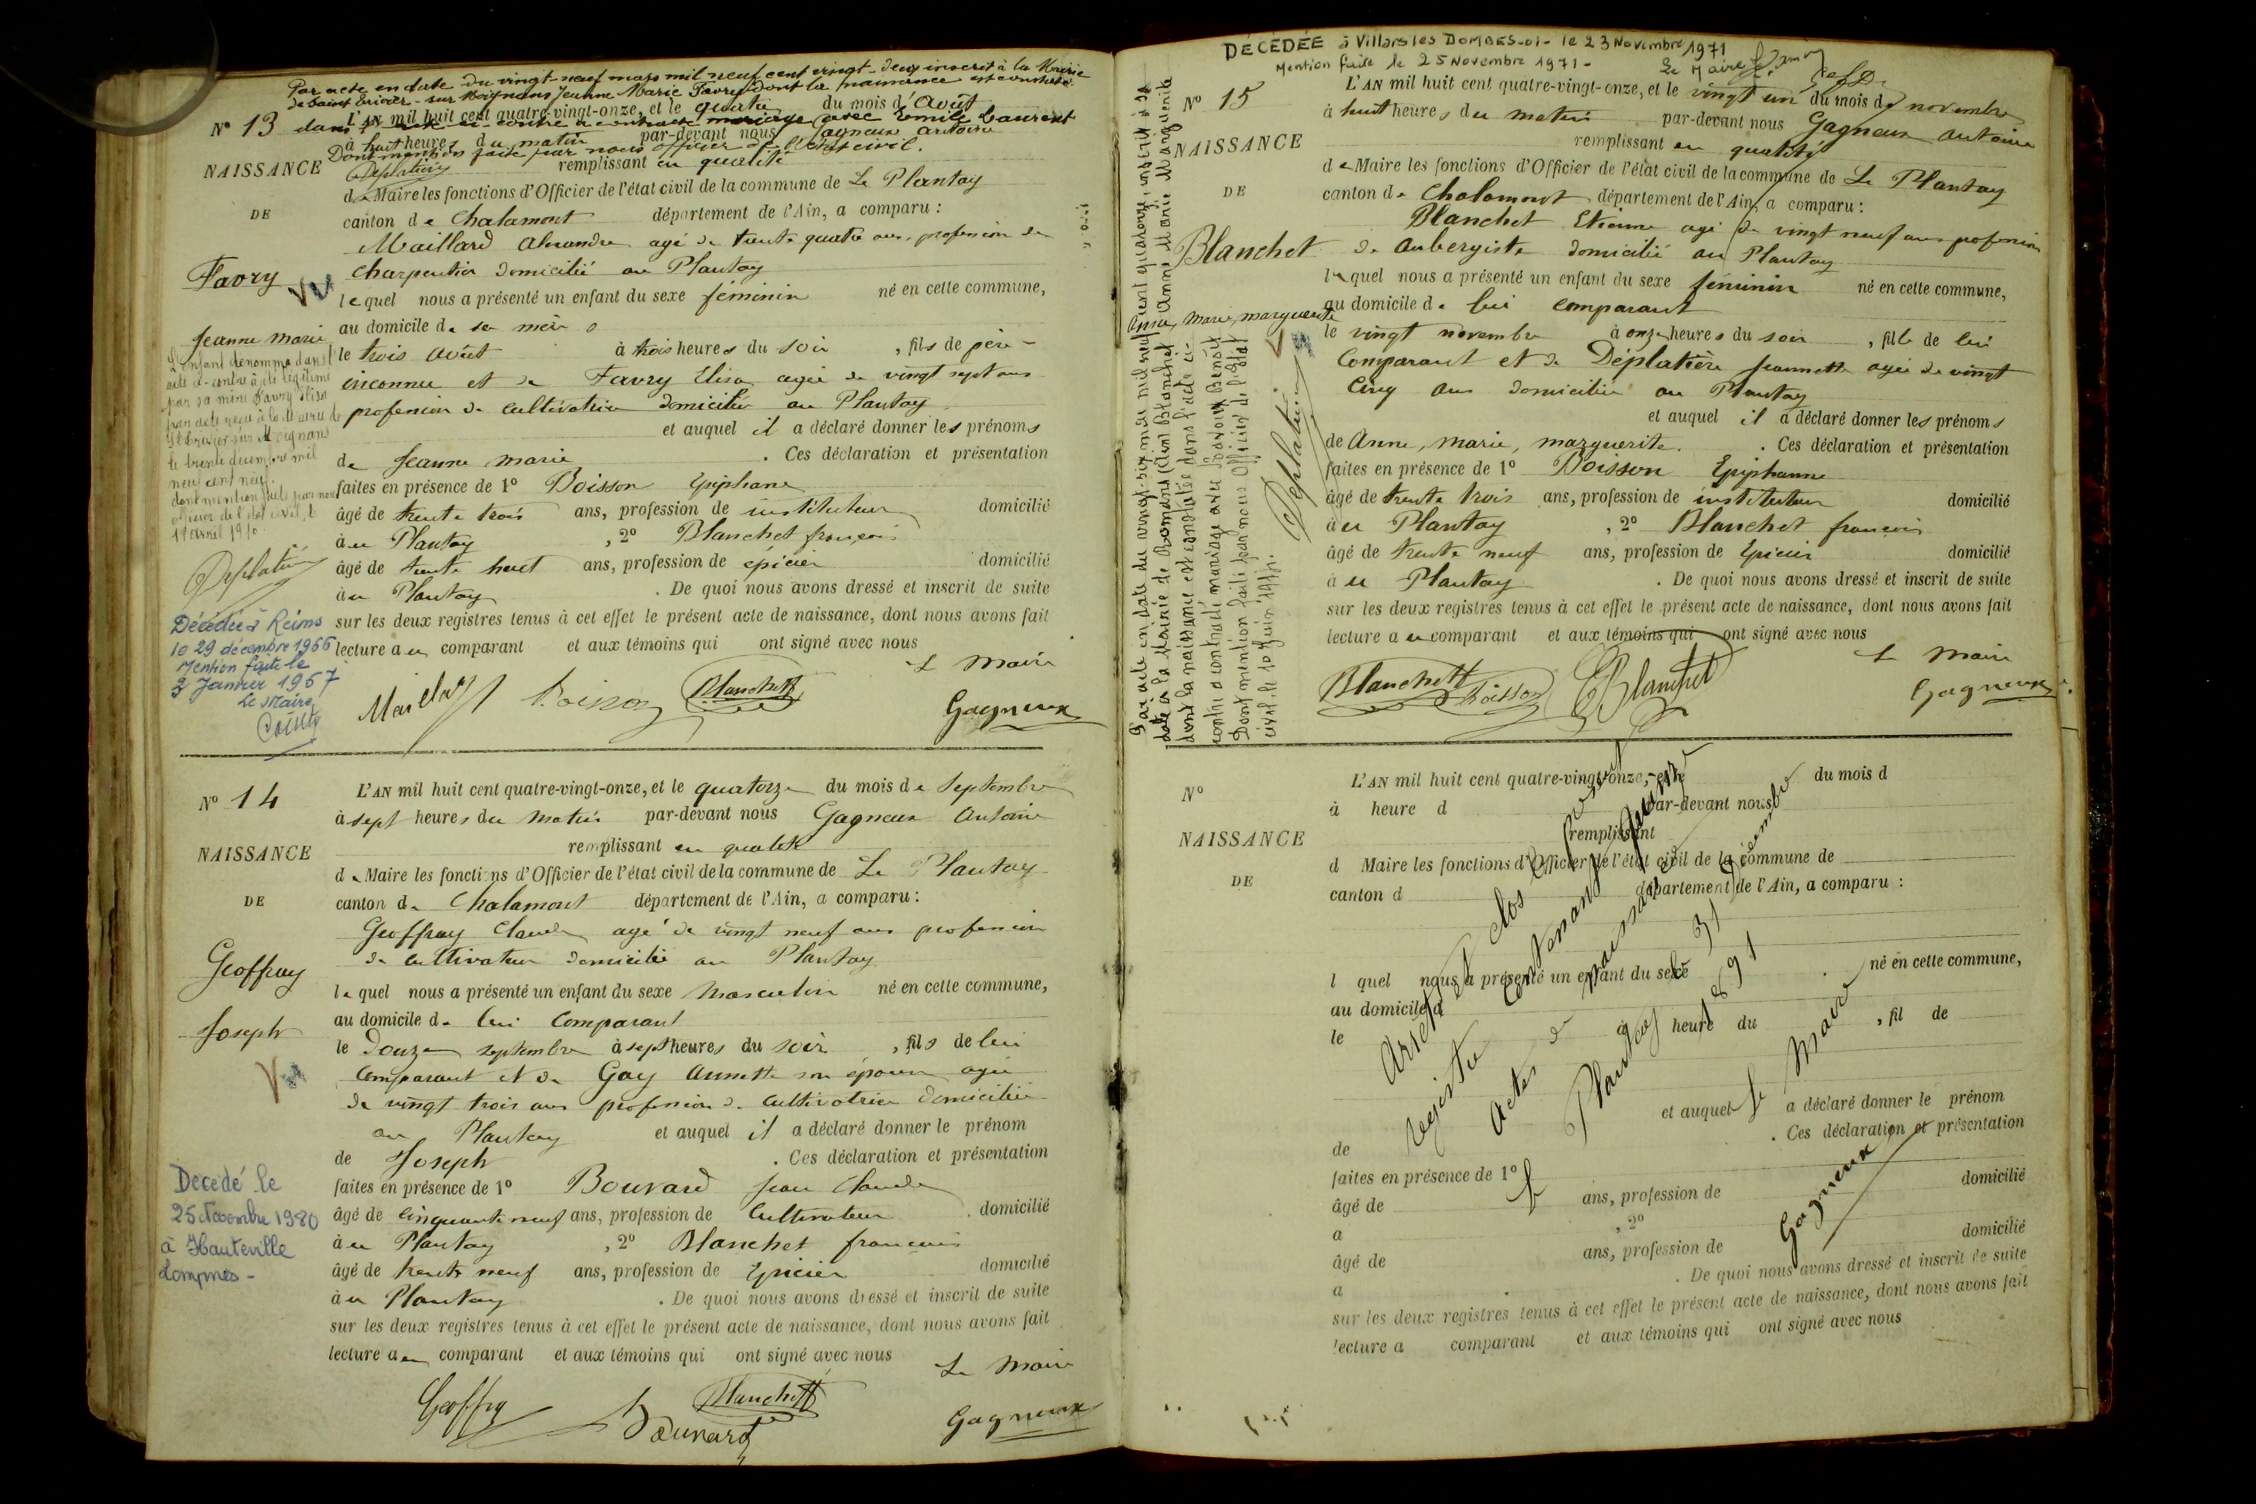 Par acte en date du vingt-neuf mars mil neuf cent vingt-deux inscrit à la Mairie
de Saint Trivier-sur Moignans Jeanne Marie Favry dont la naissance est constatée
dans l'acte ci-contre a contracté mariage avec Emile Laurent
Dont mention faite par nous officier de l'état civil.
Deplatière
N° 13
NAISSANCE
DE
Favry
Jeanne Marie
L'AN mil huit cent quatre-vingt-onze, et le quatre du mois d'Août
à huit heures du matin par-devant nous Gagneux Antoine
remplissant en qualité
de Maire les fonctions d'Officier de l'état civil de la commune de Le Plantay
canton de Chalamont département de l'Ain, a comparu :
Maillard Alexandre agé de trente quatre ans, profession de
charpentier domicilié au Plantay
lequel nous a présenté un enfant du sexe féminin né en cette commune,
au domicile de sa mère
le trois Août à trois heures du soir, fils de père
inconnu et de Favry Elisa agée de vingt sept ans
profession de cultivatrice domiciliée au Plantay
et auquel il a déclaré donner les prénoms
de Jeanne Marie. Ces déclaration et présentation
faites en présence de 1° Boisson Epiphane
âgé de trente trois ans, profession de instituteur domicilié
à au Plantay, 2° Blanchet françois
âgé de trente huit ans, profession de épicier domicilié
à au Plantay. De quoi nous avons dressé et inscrit de suite
sur les deux registres tenus à cet effet le présent acte de naissance, dont nous avons fait
lecture a au comparant et aux témoins qui ont signé avec nous
Le Maire
Maillard Boisson Blanchet Gagneux
L'enfant dénommé dans l'
acte ci-contre a été légitimé
par sa mère Favry Elisa
par acte reçu à la Mairie de
St Trivier sur Moignans
le trente décembre mil
neuf cent neuf.
dont mention faite par nous
officier de l'état civil, le
11 avril 1910
Deplatière
Décédée à Reims
le 29 décembre 1966
Mention faite le
3 Janvier 1967
Le Maire
N° 14
NAISSANCE
DE
Geoffray
Joseph
L'AN mil huit cent quatre-vingt-onze, et le quatorze du mois de Septembre
à sept heures du matin par-devant nous Gagneux Antoine
remplissant en qualité
de Maire les fonctions d'Officier de l'état civil de la commune de Le Plantay
canton de Chalamont département de l'Ain, a comparu :
Geoffray Claude agé de vingt neuf ans profession
de cultivateur domicilié au Plantay
lequel nous a présenté un enfant du sexe masculin né en cette commune,
au domicile de lui comparant
le Douze septembre à sept heures du soir, fils de lui
comparant et de Gay Annette son épouse agée
de vingt trois ans profession de cultivatrice domiciliée
au Plantay et auquel il a déclaré donner le prénom
de Joseph. Ces déclaration et présentation
faites en présence de 1° Bouvard Jean Claude
âgé de cinquante neuf ans, profession de Cultivateur domicilié
à au Plantay, 2° Blanchet francois
âgé de trente neuf ans, profession de Epicier domicilié
à au Plantay. De quoi nous avons dressé et inscrit de suite
sur les deux registres tenus à cet effet le présent acte de naissance, dont nous avons fait
lecture a au comparant et aux témoins qui ont signé avec nous
Le Maire
Geoffray Bouvard Blanchet Gagneux
Decédé le
25 Novembre 1980
à Hauteville
Lompnes-
DÉCÉDÉE à Villars les DOMBES-01- le 23 Novembre 1971
Mention faite le 25 Novembre 1971-
Le Maire
N° 15
NAISSANCE
DE
Blanchet
Anne, Marie, Marguerite
L'AN mil huit cent quatre-vingt-onze, et le vingt un du mois de novembre
à huit heures du matin par-devant nous Gagneux Antoine
remplissant en qualité
de Maire les fonctions d'Officier de l'état civil de la commune de Le Plantay
canton de Chalamont département de l'Ain, a comparu :
Blanchet Etienne agé de vingt neuf ans profession
de aubergiste domicilié au Plantay
lequel nous a présenté un enfant du sexe féminin né en cette commune,
au domicile de lui comparant
le vingt novembre à onze heures du soir, fille de lui
Comparant et de Déplatière Jeannette agée de vingt
cinq ans domiciliée au Plantay
et auquel il a déclaré donner les prénoms
de Anne, Marie, Marguerite. Ces déclaration et présentation
faites en présence de 1° Boisson Epiphane
âgé de trente trois ans, profession de instituteur domicilié
à au Plantay, 2° Blanchet francois
âgé de trente neuf ans, profession de Epicier domicilié
à au Plantay. De quoi nous avons dressé et inscrit de suite
sur les deux registres tenus à cet effet le présent acte de naissance, dont nous avons fait
lecture a au comparant et aux témoins qui ont signé avec nous
Le Maire
Blanchet Boisson E Blanchet Gagneux
Par acte en date du vingt-six mai mil neuf cent quatorze, inscrit sa
date à la Mairie de Romans (Ain) Blanchet Anne Marie Marguerite
dont la naissance est constatée dans l'acte ci-
contre a contracté mariage avec Benoit
Dont mention faite par nous Officier de l'état
civil le 10 Juin 1914.
Deplatière
N°
NAISSANCE
DE
L'AN mil huit cent quatre-vingt-onze, et le du mois d
à heure d par-devant nous
remplissant
d Maire les fonctions d'Officier de l'état civil de la commune de
canton d département de l'Ain, a comparu :
l quel nous a présenté un enfant du sexe né en cette commune,
au domicile d
le à heure du, fil de
et auquel a déclaré donner le prénom
de. Ces déclaration et présentation
faites en présence de 1°
âgé de ans, profession de domicilié
a, 2°
âgé de ans, profession de domicilié
a. De quoi nous avons dressé et inscrit de suite
sur les deux registres tenus à cet effet le présent acte de naissance, dont nous avons fait
lecture a comparant et aux témoins qui ont signé avec nous
Arrêté et clos le présent
registre contenant quinze
actes de naissance
Le Plantay le 31 Décembre
1891
Le Maire
Gagneux